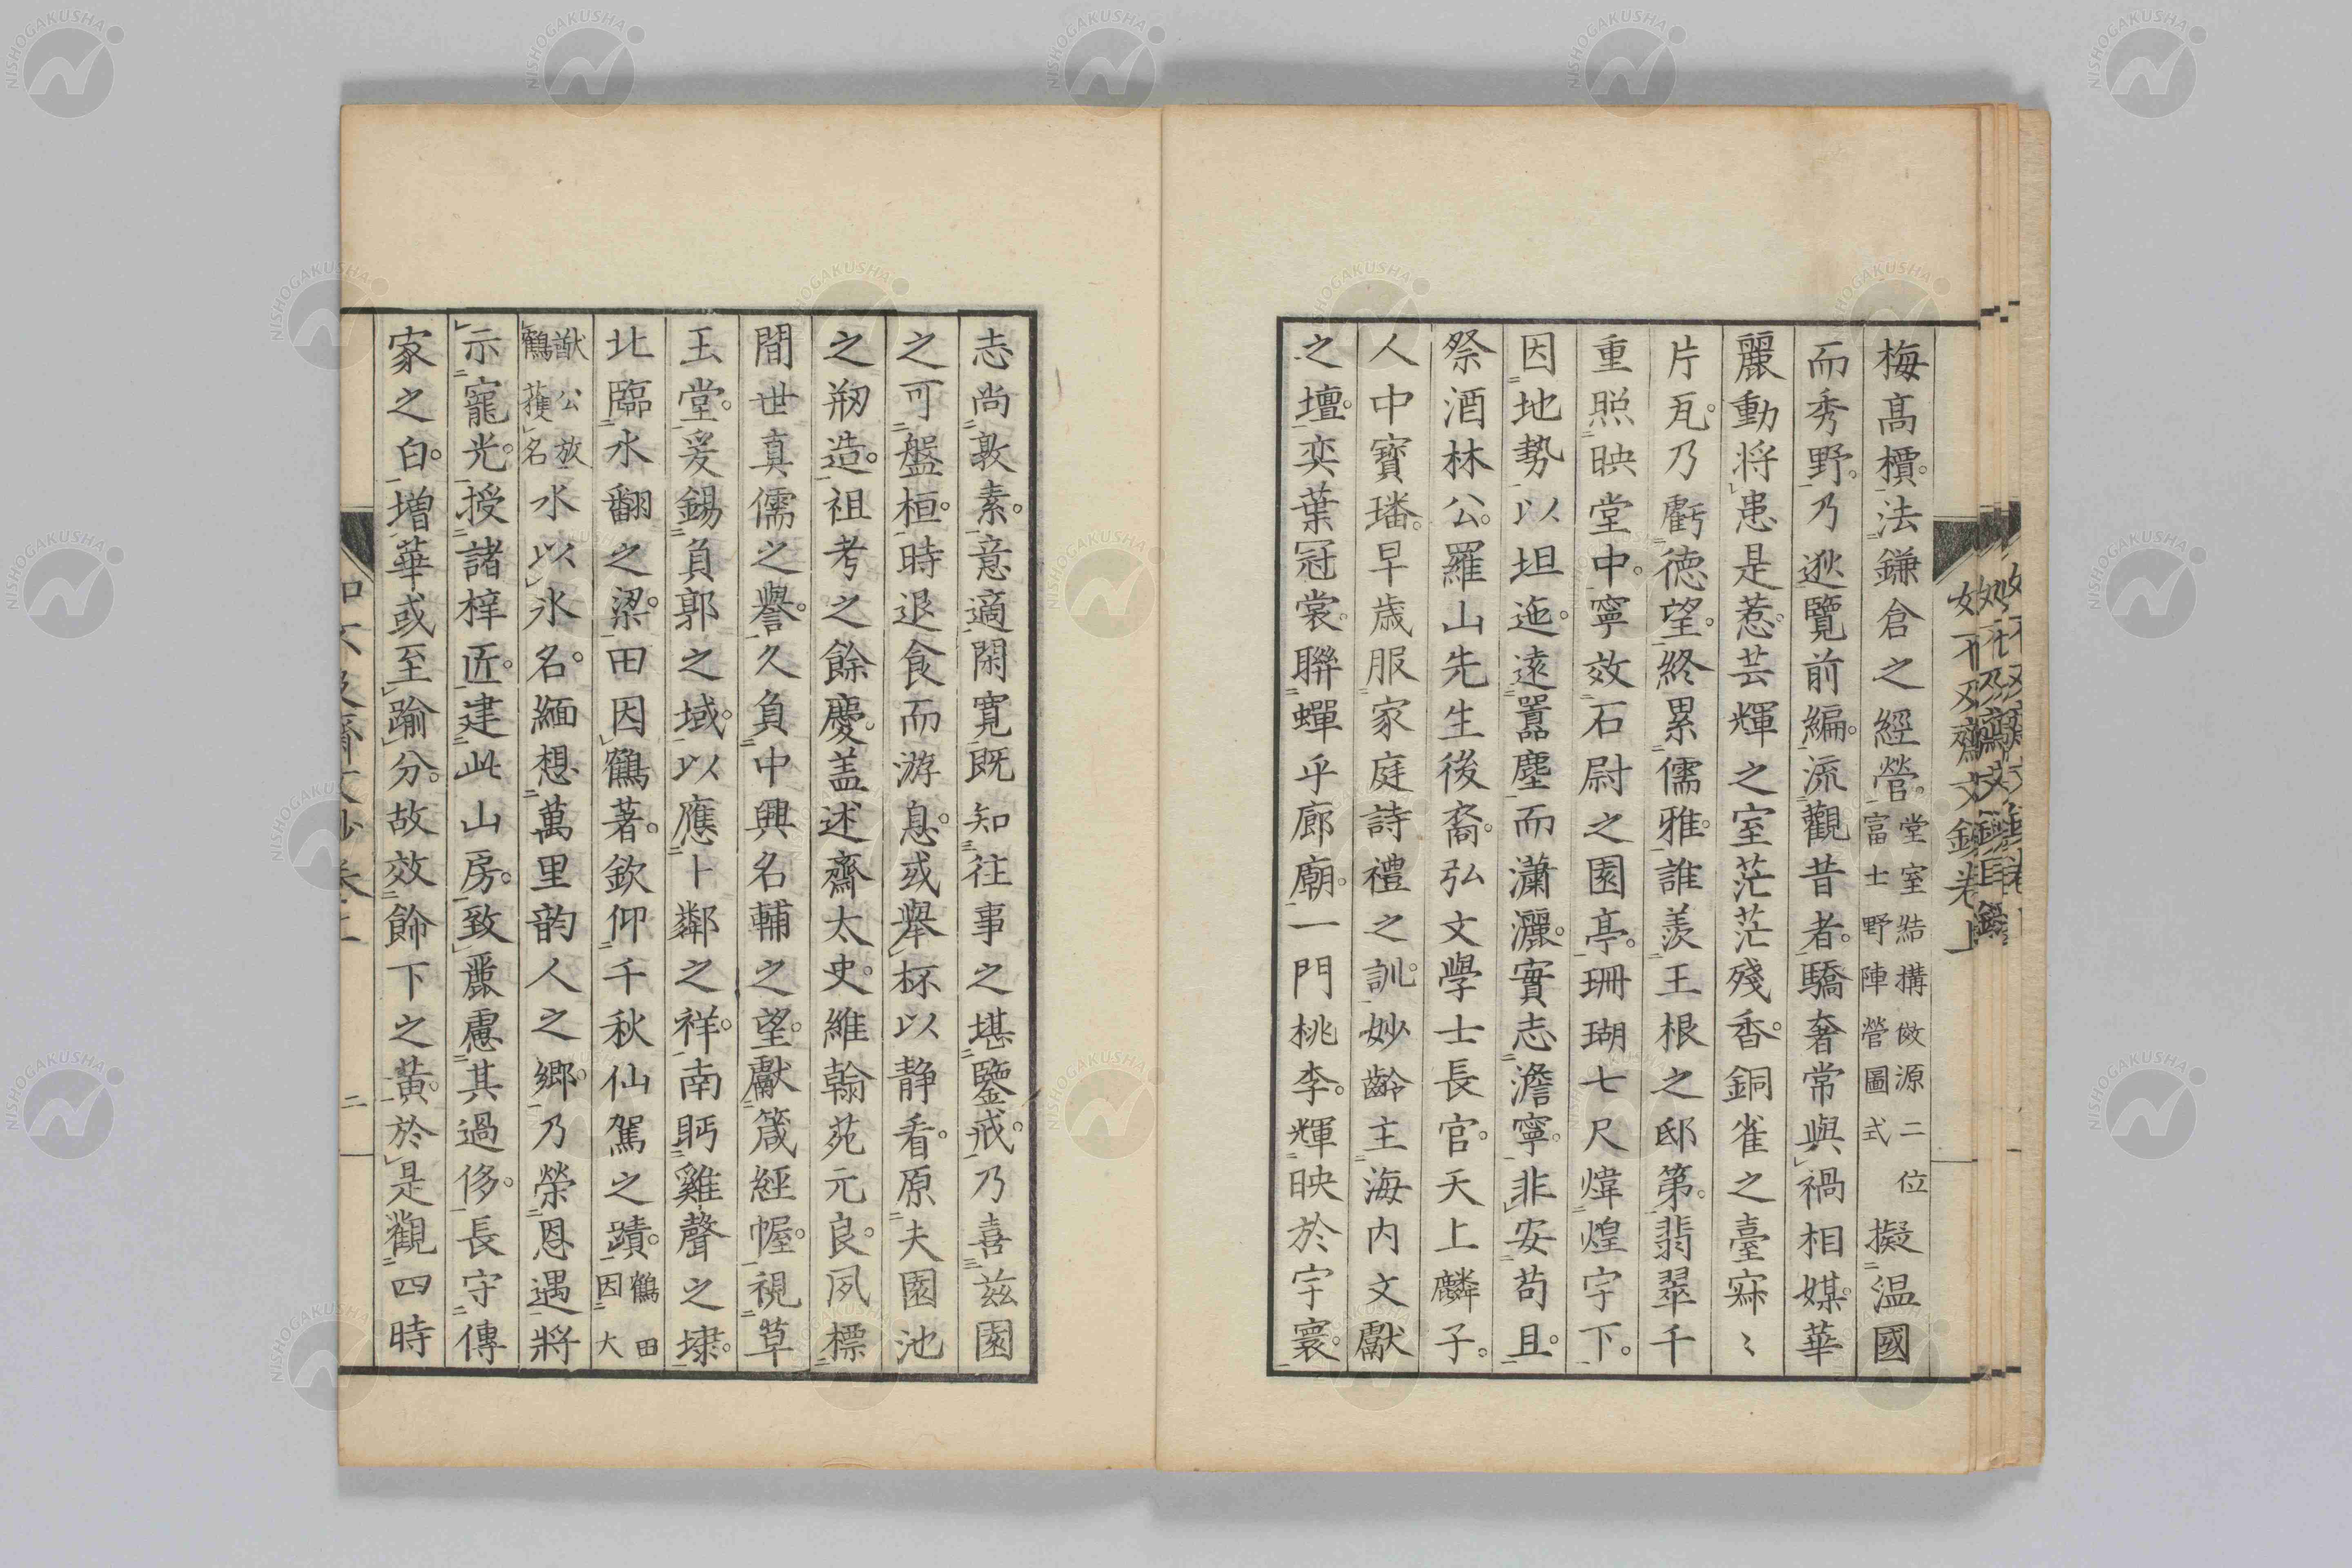 梅高櫝。法鎌倉之經營。堂室結構倣源二位富士野陣營圖式擬温國
而秀野。乃逖覽前編。流觀昔者。驕奢常與禍相媒。華
麗動将患是惹。芸輝之室茫茫殘香。銅雀之臺寂〻
片瓦。乃虧德望。終累儒雅。誰羨王根之邸第。翡翠千
重照映堂中。寧效石尉之園亭。珊瑚七尺煒煌宇下。
因地勢以坦迤。遠囂塵而瀟灑。實志澹寧。非安苟且。
祭酒林公。羅山先生後裔。弘文學士長官。天上麟子。
人中寶璠。早歳服家庭詩禮之訓。妙齡主海内文獻
之壇。奕葉冠裳。聯蟬乎廊廟。一門桃李。輝映於宇寰。
志尚敦素。意適閑寛既知往事之堪鑒戒。乃喜茲園
之可盤桓。時退食而游息。或舉杯以静看。原夫園池
之剏造。祖考之餘慶。盖述齋太史。維翰苑元良。夙標
間世真儒之譽。久負中興名輔之望。獻箴經幄。視草
玉堂。爰錫負郭之域。以應卜鄰之祥。南眄雞聲之埭。
北臨水翻之梁。田因鶴著。欽仰千秋仙駕之蹟。鶴田因大
猷公放鶴蒦名水以氷名。緬想萬里韵人之郷。乃榮恩遇將
示寵光。授諸梓匠。建此山房。致嚴慮其過侈。長守傳
家之白。増華或至踰分。故效飾下之黄。於是觀四時
如不及齋文鈔卷上
二
如不及齋文鈔卷上